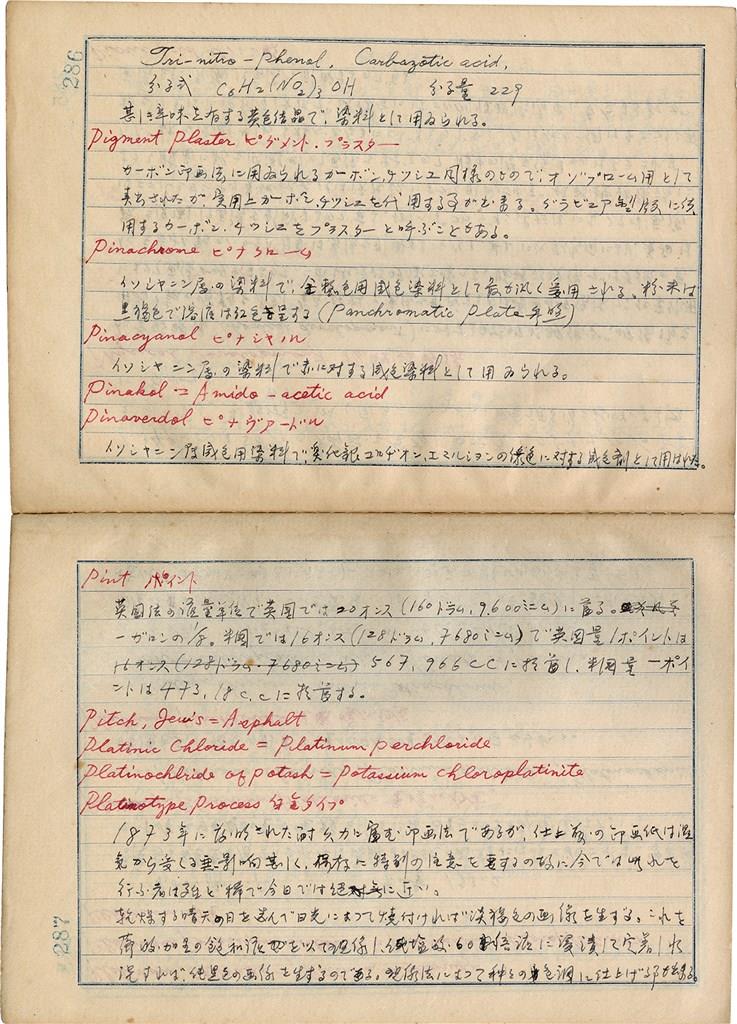 286
Tri-nitro-phenol, Carbazotic acid,
分子式 C6H2(NO2)3OH 分子量 229
甚しき辛味を有する黄色結晶で、染料として用ゐられる。
Pigment Plaster ピグメント.プラスター
カーボン印画法に用ゐられるカーボン.チツシユ同様のもので、オゾブローム用として
売出されたが、実用上カーボン.チツシユを代用する事が出来る。グラビユア製版に使
用するカーボン.チツシユをプラスターと呼ぶことがある。
Pinachrome ピナクローム
イソシヤニン属の染料で、全整色用感色染料として最も汎く愛用される、粉末は
黒褐色で溶液は紅色を呈する (Panchromatic Plate 参照)
Pinacyanol ピナシヤノル
イソシヤニン属の染料で赤に対する感色染料として用ゐられる。
Pinakol = Amido-acetic acid
Pinaverdol ピナヴアードル
イソシヤニン属感色用染料で、臭化銀コロヂオン,エミルシヨンの緑色に対する感色剤として用はれる。
Pint パイント
英国法の液量単位で英国では20オンス (160ドラム, 9,600ミニム) に当る。
一ガロンの1/8。米国では16オンス (128ドラム, 7680ミニム) で英国量1ポイントは
16オンス (128ドラム.7680ミニム) 567,966ccに相当し、米国量一ポイ
ントは473,18c.c.に相当する。
Pitch, Jew's = Asphalt
Platinic Chloride = Platinum perchloride
Platinochlride of potash = Potassium chloroplatinite
Platinotype Process 白金タイプ
1873年に発明された耐久力に富む印画法であるが、仕上前の印画紙は湿
気から受くる悪影響甚しく、保存に特別の注意を要するの故に今では此れを
行ふ者は殆ど稀で今日では絶対に近い。
乾燥する晴天の日を選んで日光によつて焼付ければ淡褐色の画像を生ずる、これを
蓚酸加里の飽和液を以て現像し、塩酸60倍液に浸漬して定着し水
洗すれば、純黒色の画像を生ずるのである、現像法によつて種々の色調に仕上げる事が出来る。
287